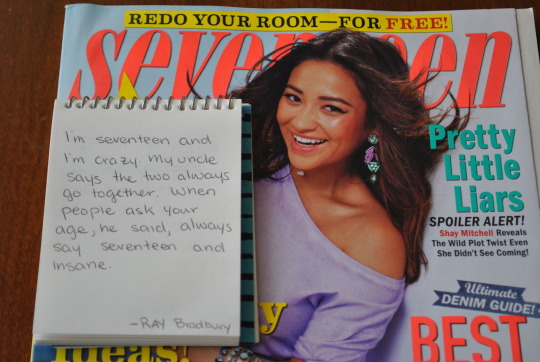 REDO YOUR ROOM—FOR FREE!
seventeen
I'm seventeen and
I'm crazy. My uncle
says the two always
go together. When
people ask your
age, he said, always
say seventeen and
insane.
-RAY Bradbury
Pretty
Little
Liars
SPOILER ALERT!
Shay Mitchell Reveals
The Wild Plot Twist Even
She Didn't See Coming!
Ultimate
DENIM GUIDE!
BEST
Ideas!